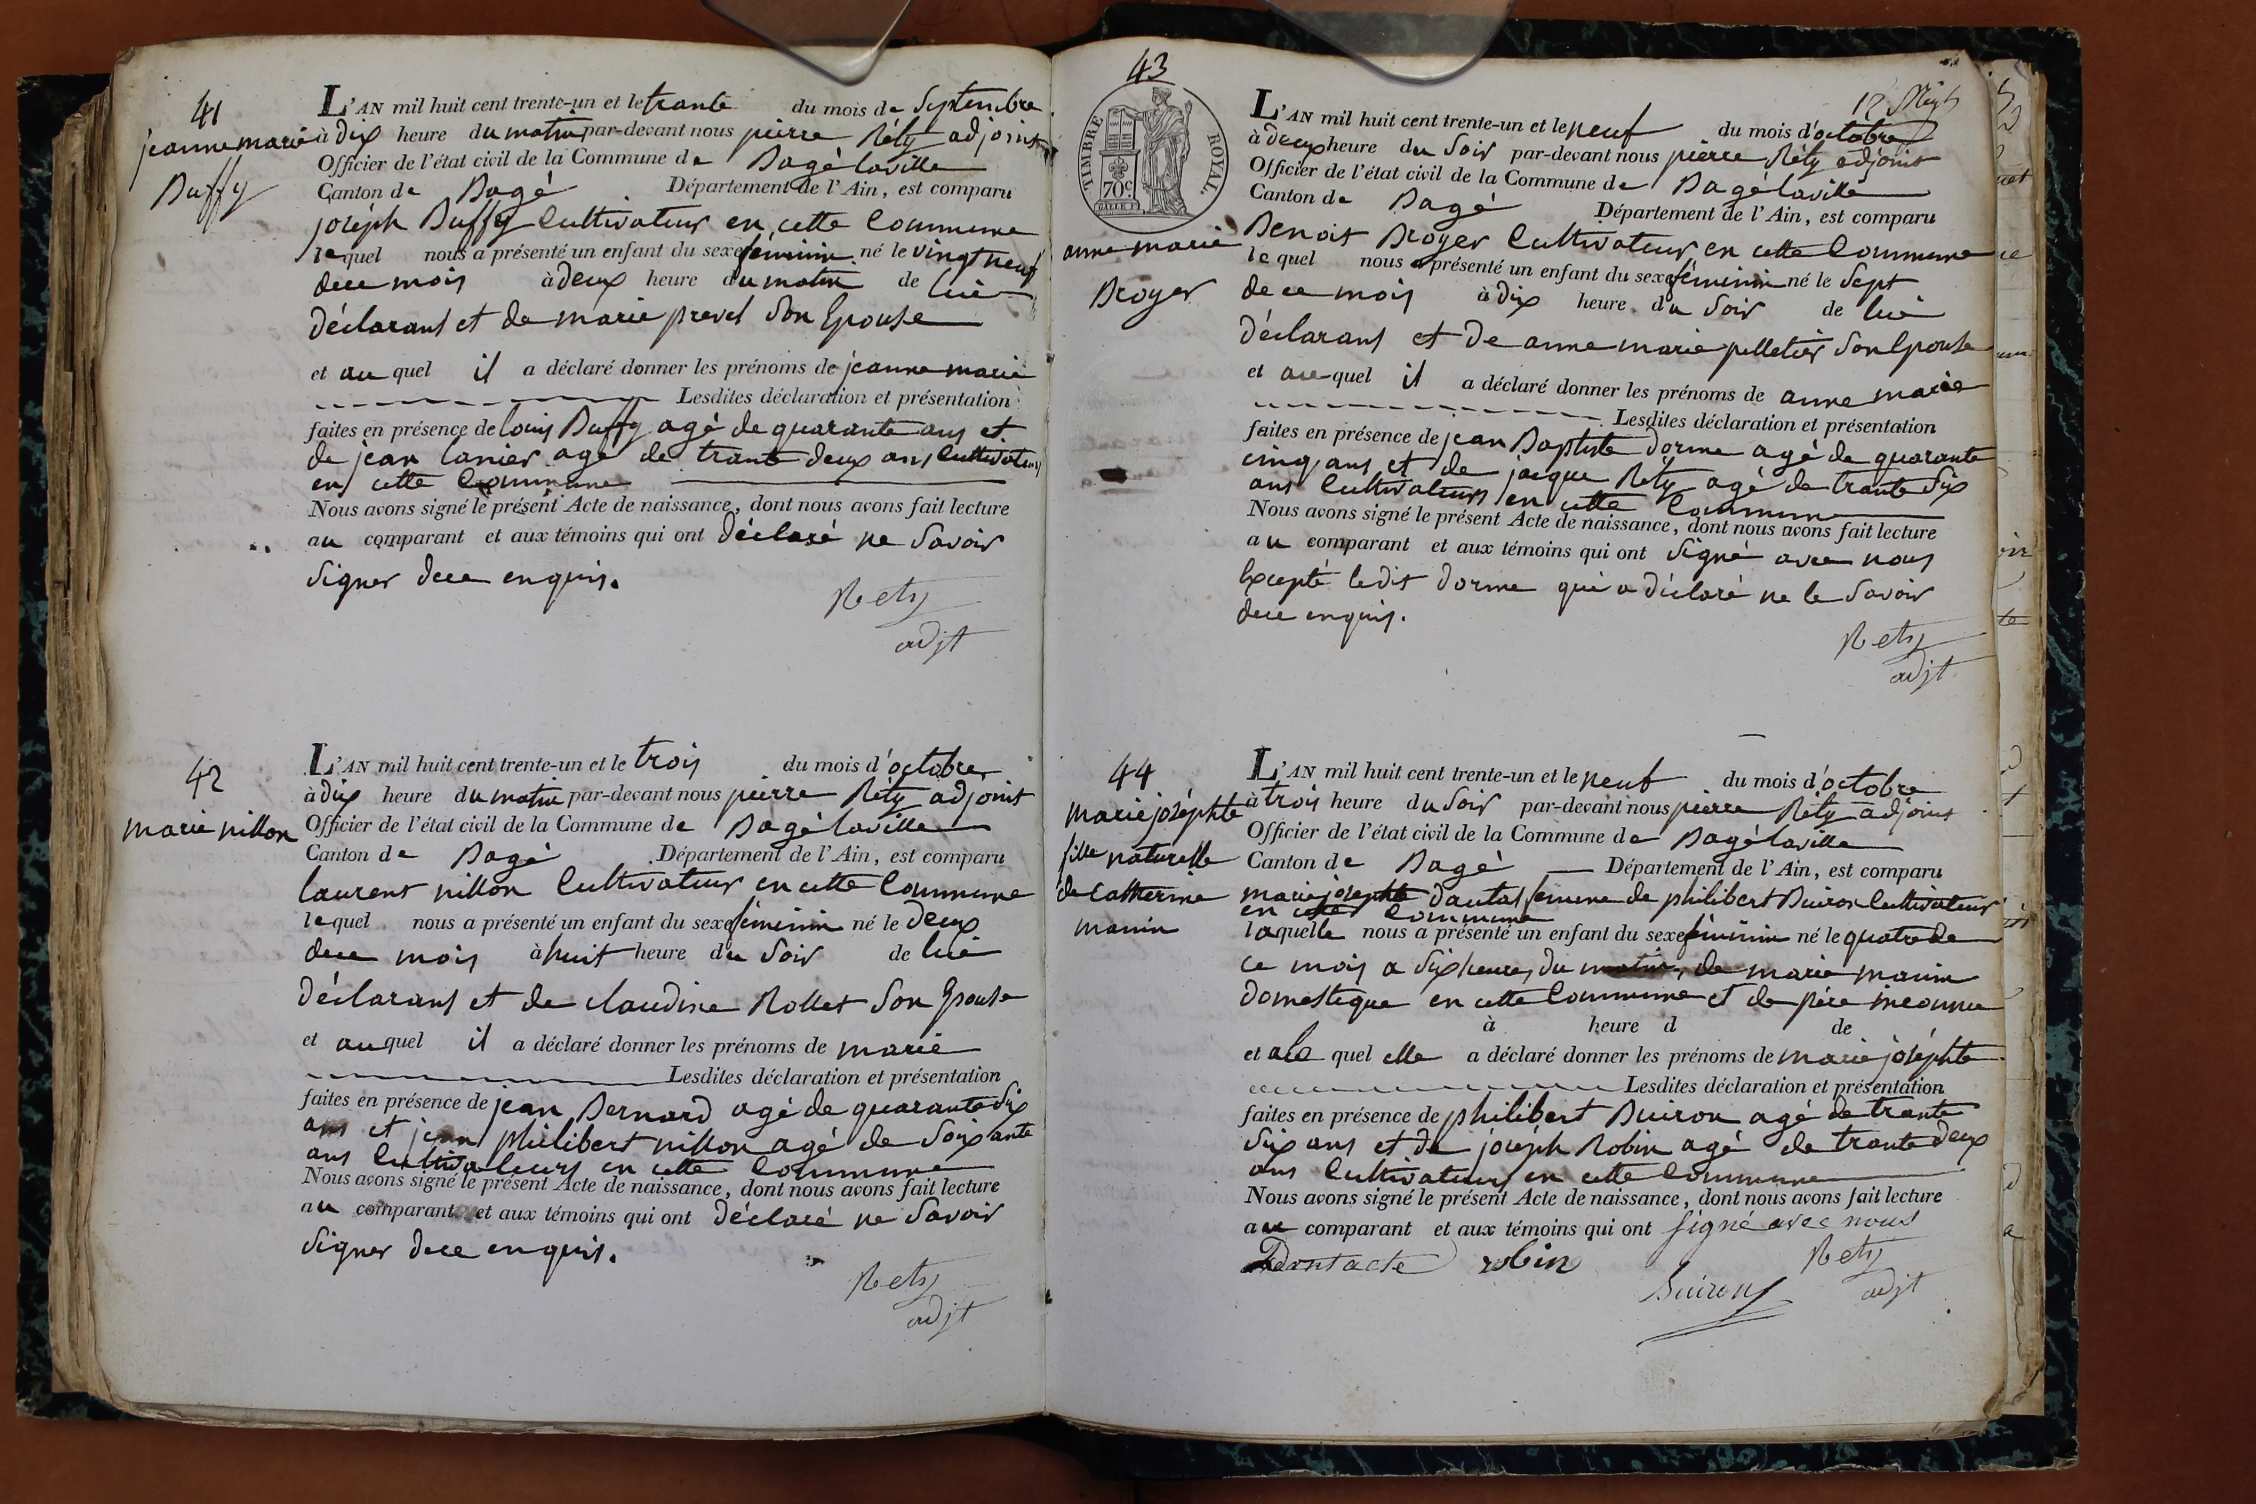 41
jeanne marie
Buffy
L'AN mil huit cent trente-un et le trante du mois de Septembre
à dix heure du matin par-devant nous pierre Réty adjoint
Officier de l'état civil de la Commune de Bagé laville
Canton de Bagé Département de l'Ain, est comparu
joséph Buffy Cultivateur en cette Commune
lequel nous a présenté un enfant du sexe féminin né le vingt neuf
dece mois à deux heure du matin de lui
déclarant et de marie prevel Son Epouse
et au quel il a déclaré donner les prénoms de jeanne marie
Lesdites déclaration et présentation
faites en présence de louis Buffy agé de quarante ans et
de jean lanier agé de trante deux ans Cultivateurs
en cette Commune
Nous avons signé le présent Acte de naissance, dont nous avons fait lecture
au comparant et aux témoins qui ont déclaré ne Savoir
Signer dece enquis.
Rety
adjt
42
marie nillon
L'AN mil huit cent trente-un et le trois du mois d'octobre
à dix heure du matin par-devant nous pierre Réty adjoint
Officier de l'état civil de la Commune de Bagé laville
Canton de Bagé Département de l'Ain, est comparu
laurent nillon Cultivateur en cette Commune
lequel nous a présenté un enfant du sexe féminin né le deux
dece mois à huit heure du Soir de lui
déclarant et de claudine Rollet Son Epouse
et au quel il a déclaré donner les prénoms de marie
Lesdites déclaration et présentation
faites en présence de jean Bernard agé de quarante Six
ans et jean philibert nillon agé de Soixante
ans Cultivateurs en cette Commune
Nous avons signé le présent Acte de naissance, dont nous avons fait lecture
au comparant et aux témoins qui ont déclaré ne Savoir
Signer dece enquis.
Rety
adjt
43
TIMBRE ROYAL
70 c.
anne marie
Broyer
L'AN mil huit cent trente-un et le neuf du mois d'octobre
à deux heure du Soir par-devant nous pierre Réty adjoint
Officier de l'état civil de la Commune de Bagé laville
Canton de Bagé Département de l'Ain, est comparu
Benoit Broyer Cultivateur en cette Commune
lequel nous a présenté un enfant du sexe féminin né le Sept
de ce mois à dix heure du Soir de lui
déclarant et de anne marie pelletier Son Epouse
et au quel il a déclaré donner les prénoms de anne marie
Lesdites déclaration et présentation
faites en présence de jean Baptiste dorme agé de quarante
cinq ans et de jacque Réty agé de trante Six
ans Cultivateurs en cette Commune
Nous avons signé le présent Acte de naissance, dont nous avons fait lecture
au comparant et aux témoins qui ont Signé avec nous
Excepté ledit dorme qui a déclaré ne le Savoir
dece enquis.
Rety
adjt
44
marie joséphte
fille naturelle
de Catherine
manin
L'AN mil huit cent trente-un et le neuf du mois d'octobre
à trois heure du Soir par-devant nous pierre Réty adjoint
Officier de l'état civil de la Commune de Bagé laville
Canton de Bagé Département de l'Ain, est comparu
marie josephte dautal femme de philibert Buiron Cultivateur
en cette Commune
laquelle nous a présenté un enfant du sexe féminin né le quatre de
ce mois a Six heures du matin, de marie manin
domestique en cette Commune et de pére inconnu
à heure d de
et ale quel elle a déclaré donner les prénoms de marie joséphte
Lesdites déclaration et présentation
faites en présence de philibert Buiron agé de trante
Six ans et de joséph Robin agé de trante deux
ans Cultivateurs en cette Commune
Nous avons signé le présent Acte de naissance, dont nous avons fait lecture
au comparant et aux témoins qui ont signé avec nous
Dont acte robin Rety
Buiron adjt